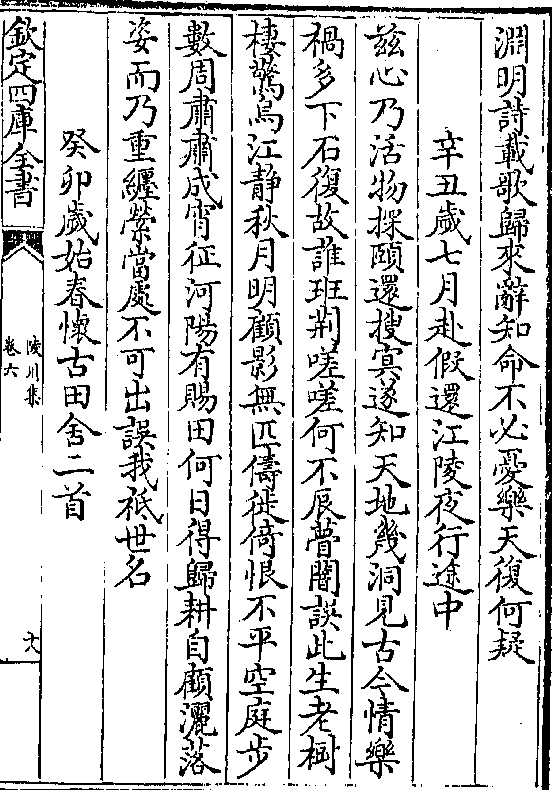 淵明詩載歌歸來辭知命不必憂樂天復何疑
辛丑歲七月赴假還江陵夜行途中
兹心乃活物探賾還搜㝠遂知天地幾洞見古今情樂
禍多下石復故誰班荆嗟嗟何不辰瞢闇誤此生老樹
棲驚烏江靜秋月明顧影無匹儔徙倚恨不平空庭步
數周肅肅成宵征河陽有賜田何日得歸耕自顧灑落
姿而乃重纒縈當處不可出誤我祗世名
癸卯歲始春懷古田舍二首
欽定四庫全書
陵川集
卷六
十八